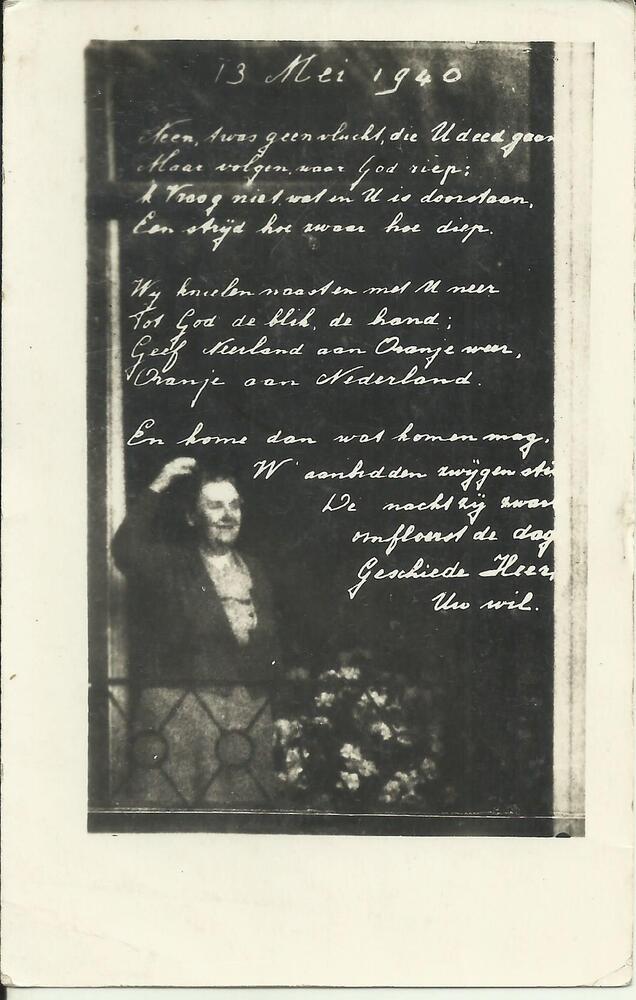 13 Mei 1940
Neen, 't was geen vlucht, die U deed gaan
Maar volgen, waar God riep;
'k Vraag niet wat in U is doorstaan,
Een strijd hoe zwaar hoe diep.
Wij knielen naast en met U neer
Tot God de blik, de hand;
Geef Neerland aan Oranje weer,
Oranje aan Nederland.
En kome dan wat komen mag,
W' aanbidden zwijgen stil
De nacht zij zwart
omfloerst de dag
Geschiede Heer,
Uw wil.